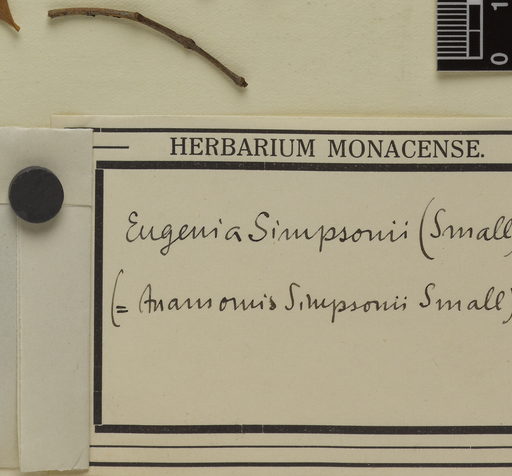 0 1
HERBARIUM MONACENSE.
Eugenia Simpsonii (Small)
(= Anamomis Simpsonii Small)